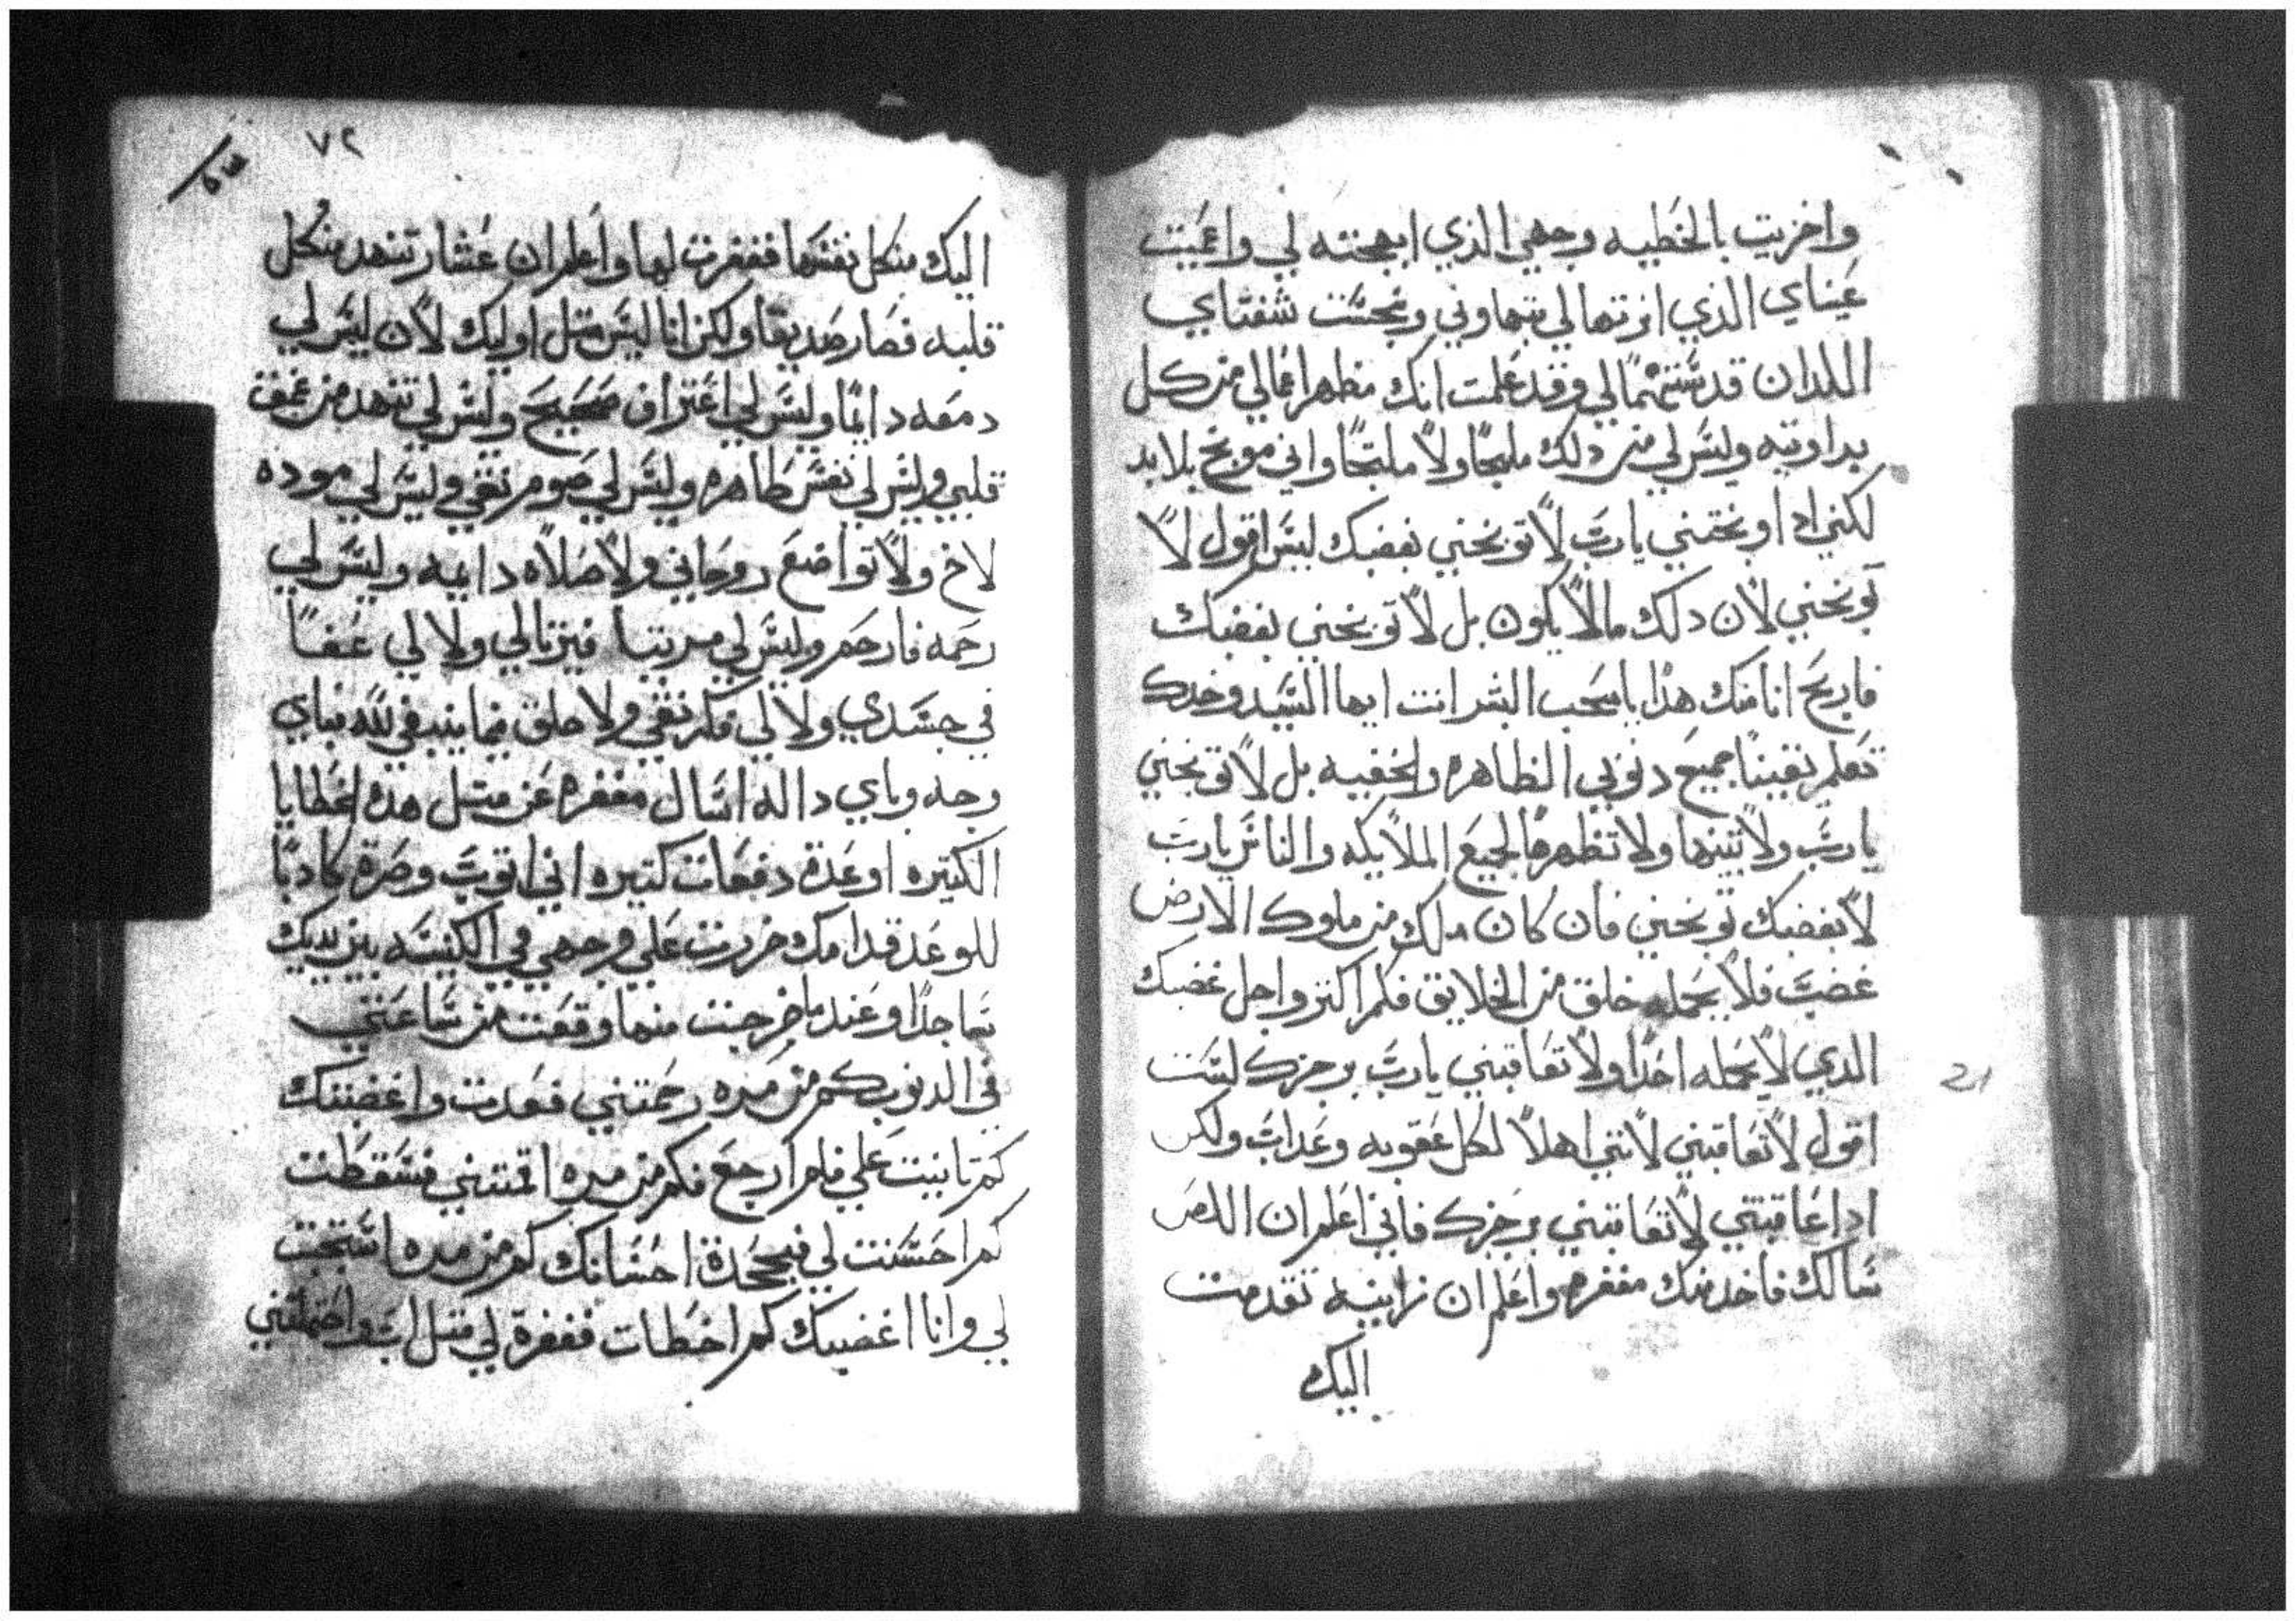 واخزيت بالخطيه وجهي الذي ابهجته لي واعميت
عيناي الذي انرتها لي بتهاوني ونجست شفتاي
اللدان قدستهما لي وقد علمت انك مظهر اعمالي من كل
بداوتيه وليس لي من دلك ملجا ولا ملتجا واني موبخ بلا بد
لكني ادا وبختني يارب لا توبخني بغضبك ليس اقول لا
توبخني لان دلك مالا يكون بل لا توبخني بغضبك
فاربح انا منك هدا يا محب البشر انت ايها السيد وحدك
تعلم يقينا جميع دنوبي الظاهره والخفيه بل لا توبخني
يارب ولا تبينها ولا تظهرها لجميع الملايكه والناس يارب
لا بغضبك توبخني فان كان ملك من ملوك الارض
غضب فلا يحمله خلق من الخلايق فكم اكتر واجل غضبك
الدي لا يحمله احدا ولا تعاقبني يارب برجزك لست
اقول لا تعاقبني لانني اهلا لكل عقوبه وعداب ولكن
ادا عاقبتني لا تعاقبني برجزك فاني اعلم ان اللص
سالك فاخد منك مغفره واعلم ان زانيه تقدمت
اليك
٧٢
اليك من كل نفسها فغفرت لها واعلم ان عشار تنهد من كل
قلبه فصار صديقا ولكن انا ليس متل اوليك لان ليس لي
دمعه دايما وليس لي اعتراف صحيح وليس لي تنهد من عمق
قلبي وليس لي نفس طاهره وليس لي صوم نقي وليس لي موده
لاخ ولا تواضع روحاني ولا صلاه دايمه وليس لي
رحمه فارحم وليس لي ولا لي عفا
في جسدي ولا لي فكر نقي ولا خلق فيما ينبغي لله فباي
وجه وباي داله اسال مغفره عن متل هده الخطايا
الكتيره اوعدة دفعات كتيره اني اتوب وصرة كادبا
للوعد قدامك خررت علي وجهي في الكنيسه بين يديك
ساجدا وعندما خرجت منها وقعت من ساعتي
في الدنوب كم من مره رحمتني فعدت واغضبتك
كم تانيت علي فلم ارجع فكم من مره اقمتني فسقطت
كم احسنت لي فجحدة احسانك كم من مره استجبت
لي وانا اغضبك كم اخطات فغفرة لي متل اب واحتملتني
21